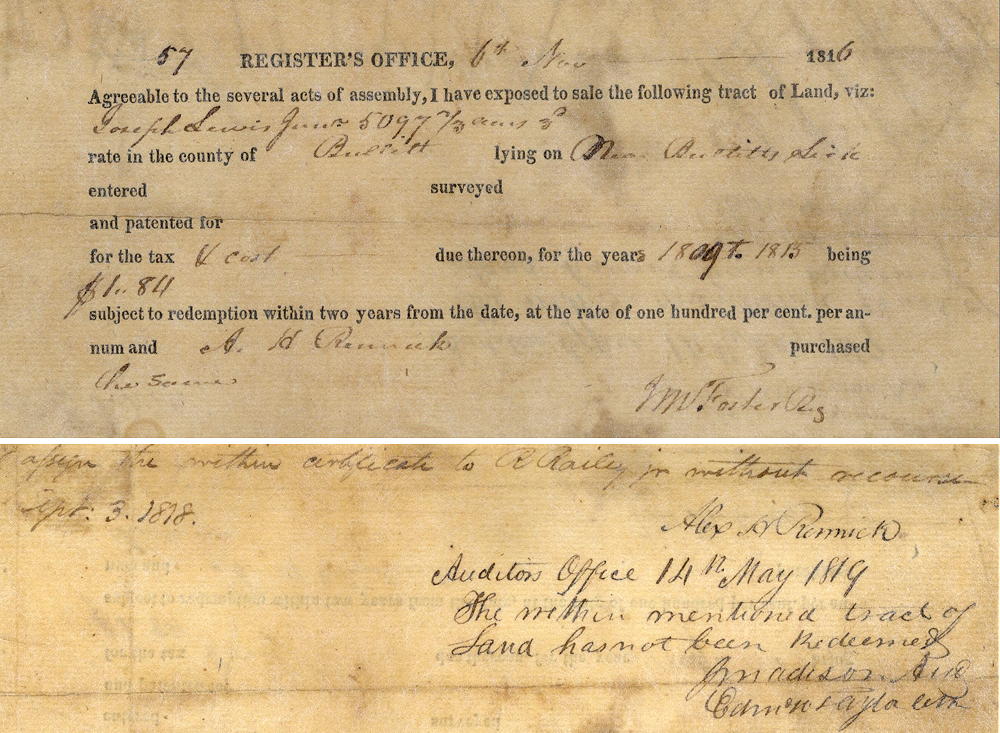 57 REGISTER'S OFFICE, 6th Nov 1816
Agreeable to the several acts of assembly, I have exposed to sale the following tract of Land, viz:
Joseph Lewis Junr 5097 2/3 acres 3d
rate in the county of Bullitt lying on Near Bullitts Lick
entered surveyed
and patented for
for the tax & cost due thereon, for the years 1809 to 1815 being
$1.. 84
subject to redemption within two years from the date, at the rate of one hundred per cent. per an-
num and A. H Rennick purchased
the same
Foster Reg
assign the within certificate to R Railey jr without recourse
Sept. 3. 1818.
Alex H Rennick
Auditors Office 14th May 1819
The within mentioned tract of
Land has not been Redeemed
J madison Aud